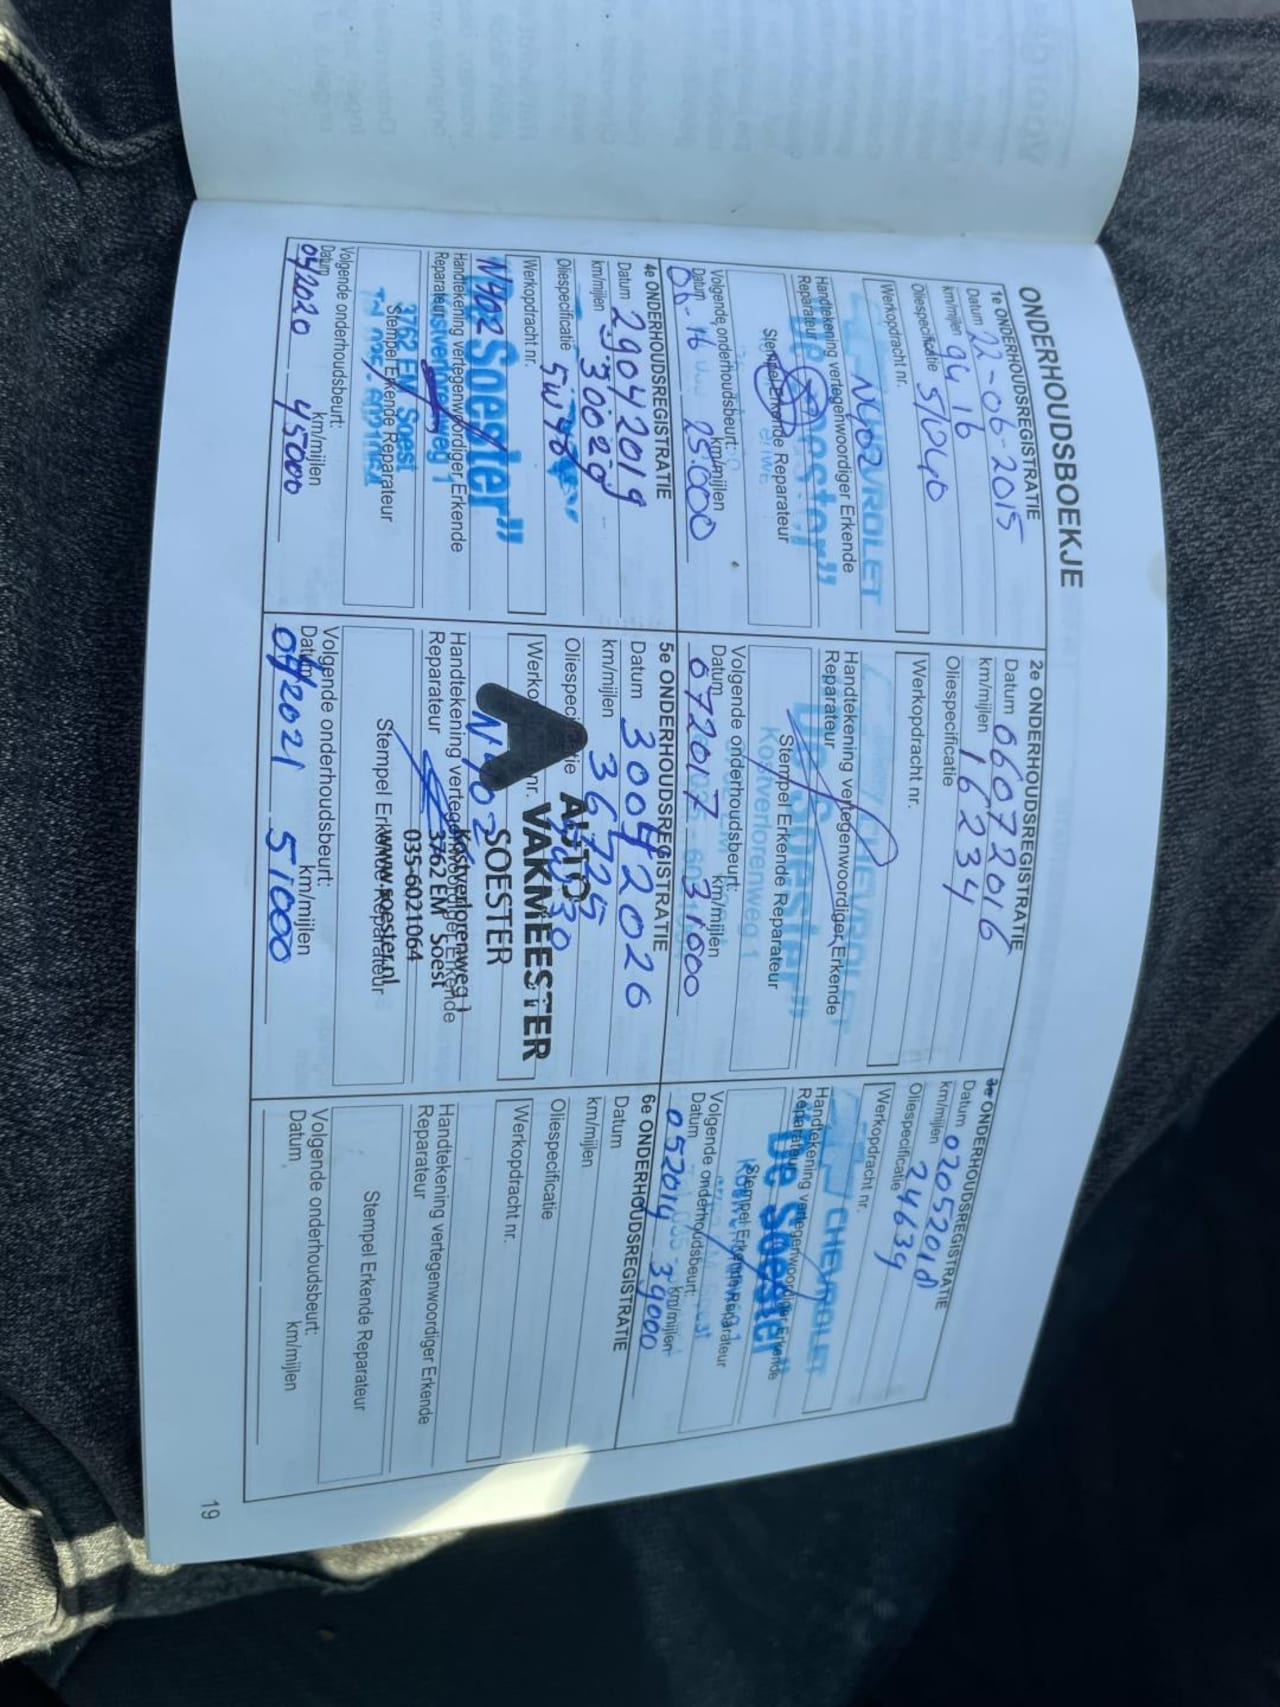 ONDERHOUDSBOEKJE
1e ONDERHOUDSREGISTRATIE
Datum 22-06-2015
km/mijlen 9416
Oliespecificatie 5/W40
Werkopdracht nr.
N402
CHEVROLET
Handtekening vertegenwoordiger Erkende
Reparateur
"De Soester"
Stempel Erkende Reparateur
Volgende onderhoudsbeurt:
Datum km/mijlen
06-16 25.000
2e ONDERHOUDSREGISTRATIE
Datum 06072016
km/mijlen 16234
Oliespecificatie
Werkopdracht nr.
CHEVROLET
Handtekening vertegenwoordiger Erkende
Reparateur
"De Soester"
Kostverlorenweg 1
Stempel Erkende Reparateur
Volgende onderhoudsbeurt:
Datum km/mijlen
072017 31000
3e ONDERHOUDSREGISTRATIE
Datum 02052018
km/mijlen 24639
Oliespecificatie
Werkopdracht nr.
CHEVROLET
Handtekening vertegenwoordiger Erkende
Reparateur
"De Soester"
Kostverlorenweg 1
Stempel Erkende Reparateur
Volgende onderhoudsbeurt:
Datum km/mijlen
052019 39000
4e ONDERHOUDSREGISTRATIE
Datum 29042019
km/mijlen 30029
Oliespecificatie 5W40
Werkopdracht nr.
N402 Soester"
Handtekening vertegenwoordiger Erkende
Reparateur
Kostverlorenweg 1
3762 EM Soest
Stempel Erkende Reparateur
Tel. 035-6021064
Volgende onderhoudsbeurt:
Datum km/mijlen
04/2020 45000
5e ONDERHOUDSREGISTRATIE
Datum 30042020
km/mijlen 36725
Oliespecificatie 5W30
AUTO
VAKMEESTER
Werkopdracht nr.
N402
SOESTER
Handtekening vertegenwoordiger Erkende
Reparateur
Kostverlorenweg 1
3762 EM Soest
035-6021064
www.soester.nl
Stempel Erkende Reparateur
Volgende onderhoudsbeurt:
Datum km/mijlen
04/2021 51000
6e ONDERHOUDSREGISTRATIE
Datum
km/mijlen
Oliespecificatie
Werkopdracht nr.
Handtekening vertegenwoordiger Erkende
Reparateur
Stempel Erkende Reparateur
Volgende onderhoudsbeurt:
Datum km/mijlen
19